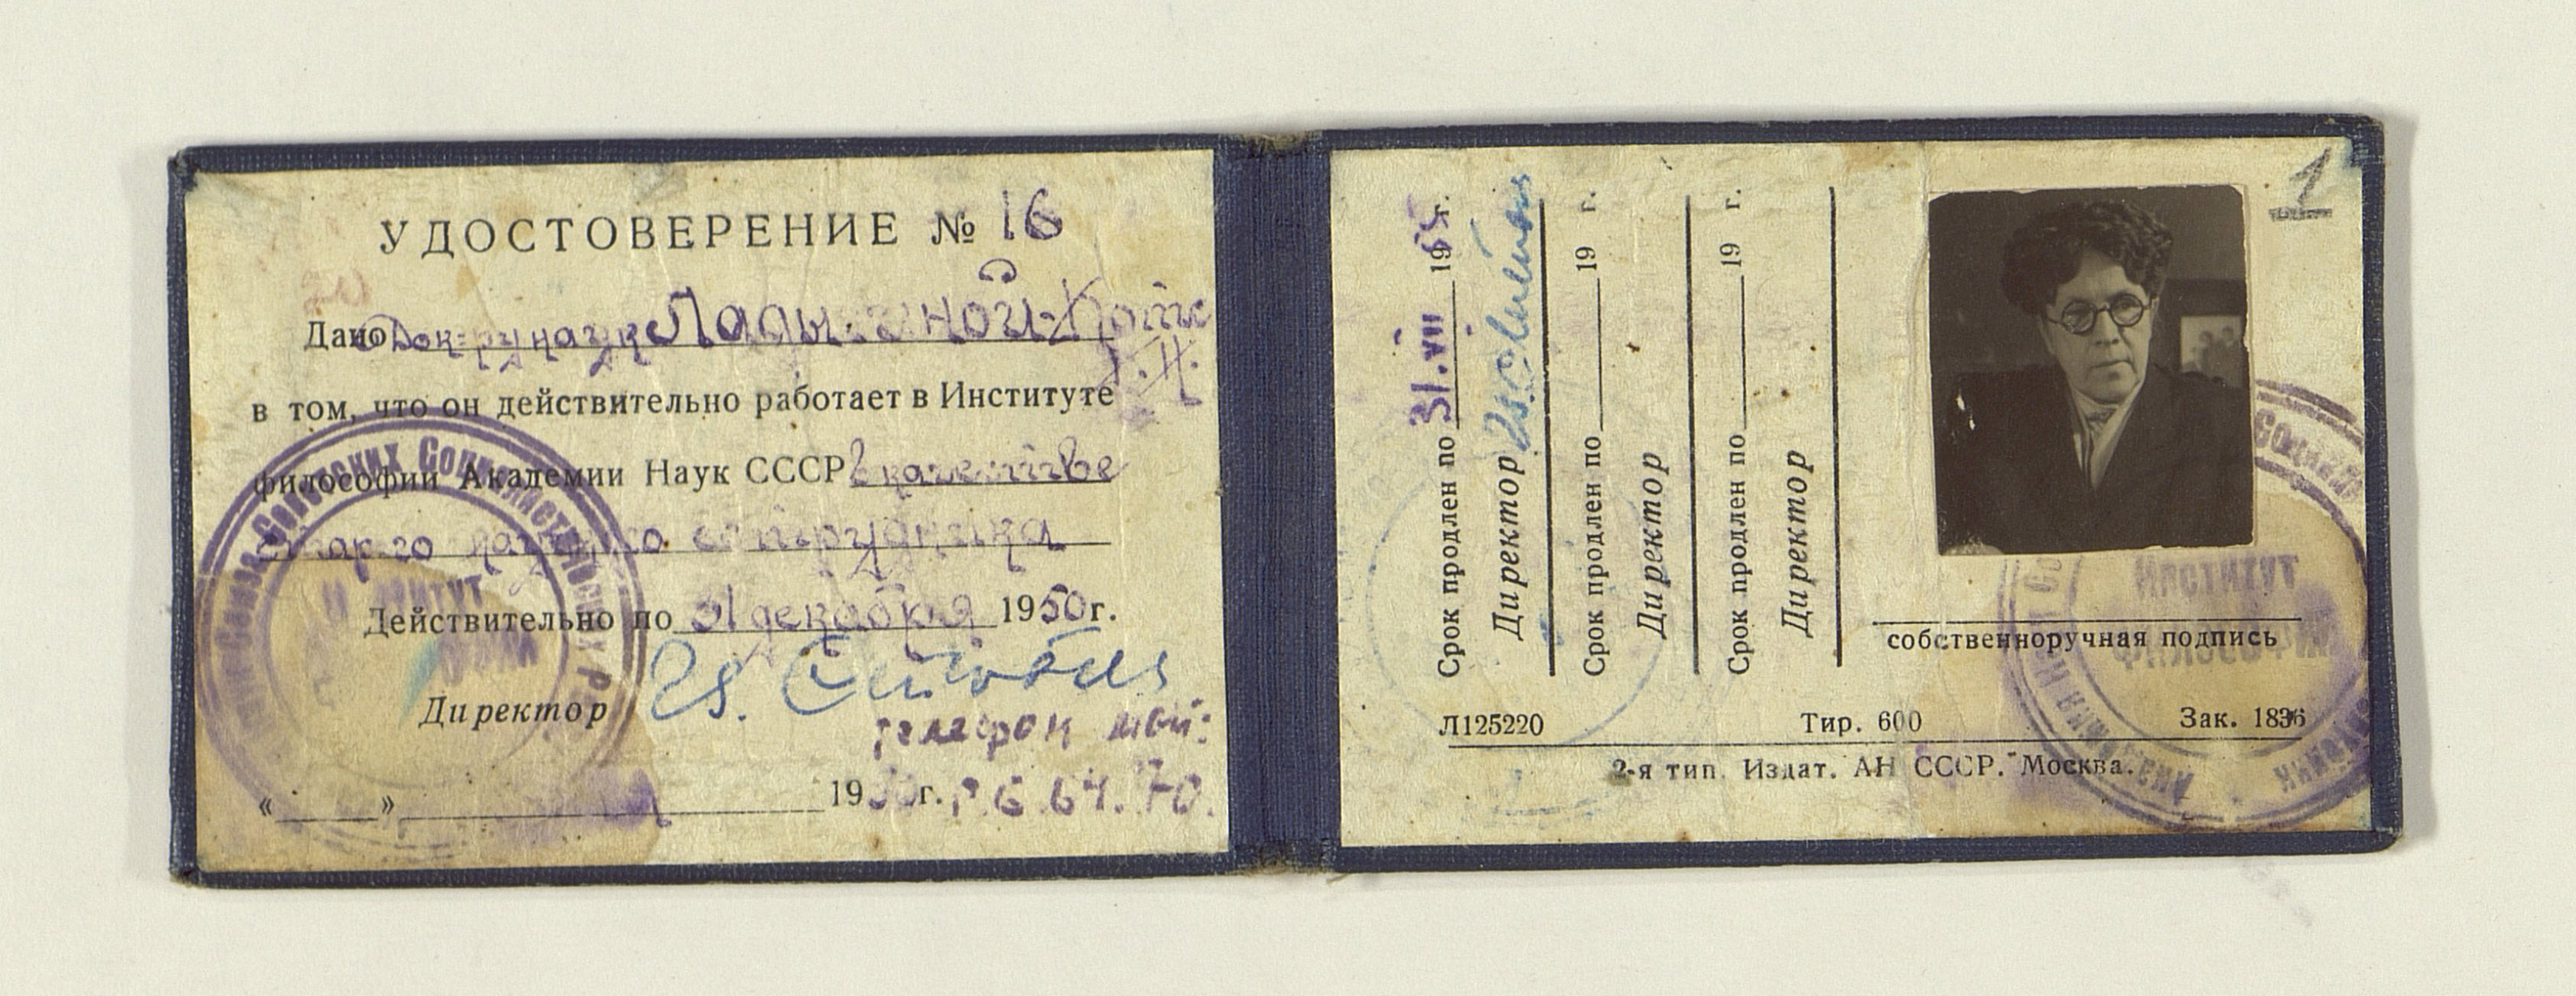 УДОСТОВЕРЕНИЕ № 16
Дано Док-ру наук Ладыгиной-Котс
Н.Н.
в том, что он действительно работает в Институте
философии Академии Наук СССР в качестве
стар-го научного сотрудника
Действительно по 31 декабря 1950 г.
Директор
телефон мой:
« » 1950 г. Г.6.64.70.
Срок продлен по 31.VII 1955 г.
Директор
Срок продлен по 19 г.
Директор
Срок продлен по 19 г.
Директор
1
Институт
собственноручная подпись
Л125220 Тир. 600 Зак. 1836
2-я тип. Издат. АН СССР. Москва.